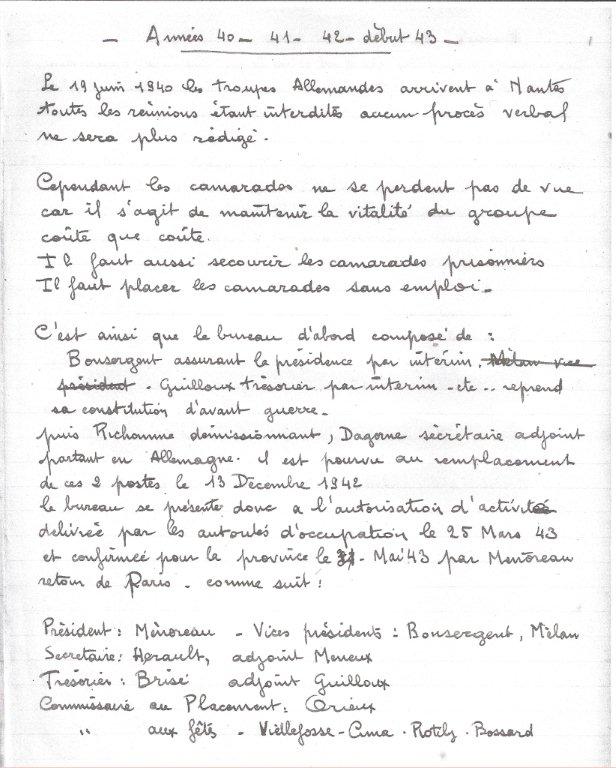 - Années 40 - 41 - 42 - début 43 -
Le 19 juin 1940 les troupes Allemandes arrivent à Nantes
toutes les réunions étant interdites aucun procès verbal
ne sera plus rédigé.
Cependant les camarades ne se perdent pas de vue
car il s'agit de maintenir la vitalité du groupe
coûte que coûte.
Il faut aussi secourir les camarades prisonniers
Il faut placer les camarades sans emploi -
C'est ainsi que le bureau d'abord composé de :
Bonsergent assurant la présidence par intérim, Mélan vice
président - Guilloux trésorier par interim - etc .. reprend
sa constitution d'avant guerre -
puis Richomme démissionnant, Dagorne sécrétaire adjoint
partant en Allemagne. il est pourvu au remplacement
de ces 2 postes le 13 Décembre 1942
le bureau se présente donc a l'autorisation d'activité
délivrée par les autorités d'occupation le 25 Mars 43
et confirmée pour la province le - Mai 43 par Ménoreau
retour de Paris - comme suit :
Président : Ménoreau - Vices présidents : Bonsergent, Mélan
Secretaire : Herault, adjoint Meneux
Trésorier : Brisé adjoint Guilloux
Commissaire au Placement : Orieux
" aux fêtes - Viellefosse - Cima - Rotily - Bossard